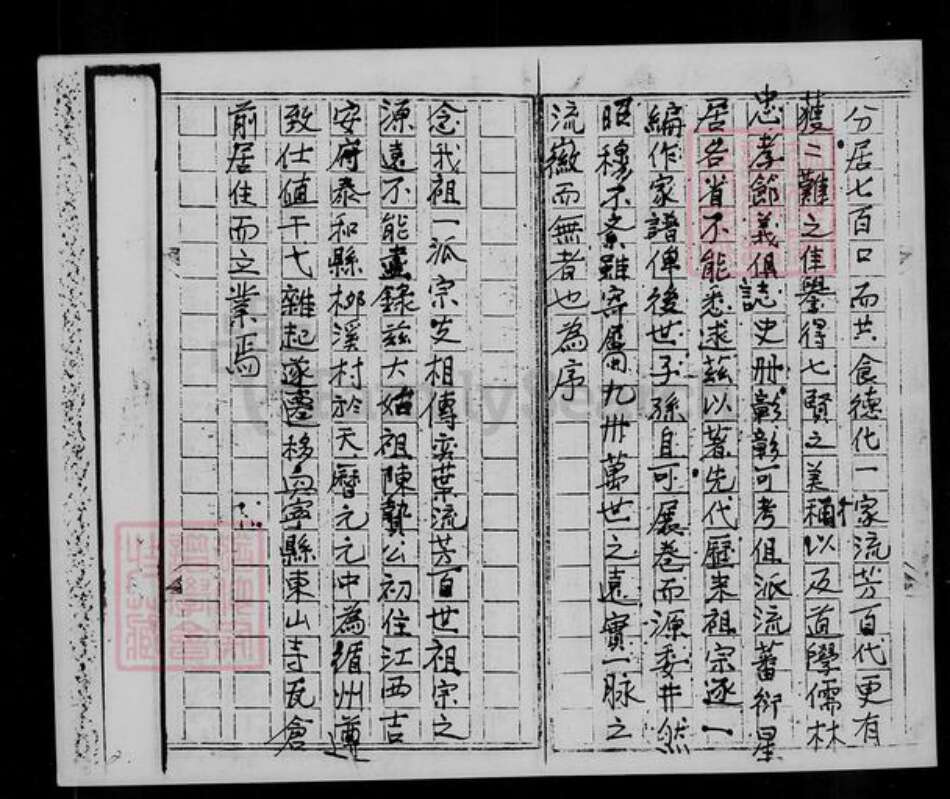 分居七百口而共食德化一家流芳百代更有
獲二難之佳譽得七賢之美稱以及道學儒林
忠孝節義俱誌史册彰彰可考但派流蕃衍星
居各省不能悉求茲以著先代歷來祖宗逐一
編作家譜俾後世子孫自可展卷而源委井然
昭穆不紊雖寄屬九州萬世之遠實一脉之
流徽而無者也為序
念我祖一派宗支相傳奕葉流芳百世祖宗之
源遠不能盡錄茲大始祖陳贄公初住江西吉
安府泰和縣柳溪村於天曆元元中為循州遵
致仕值干弋雜起遂遷移兴寧縣東山寺瓦倉
前居住而立業焉